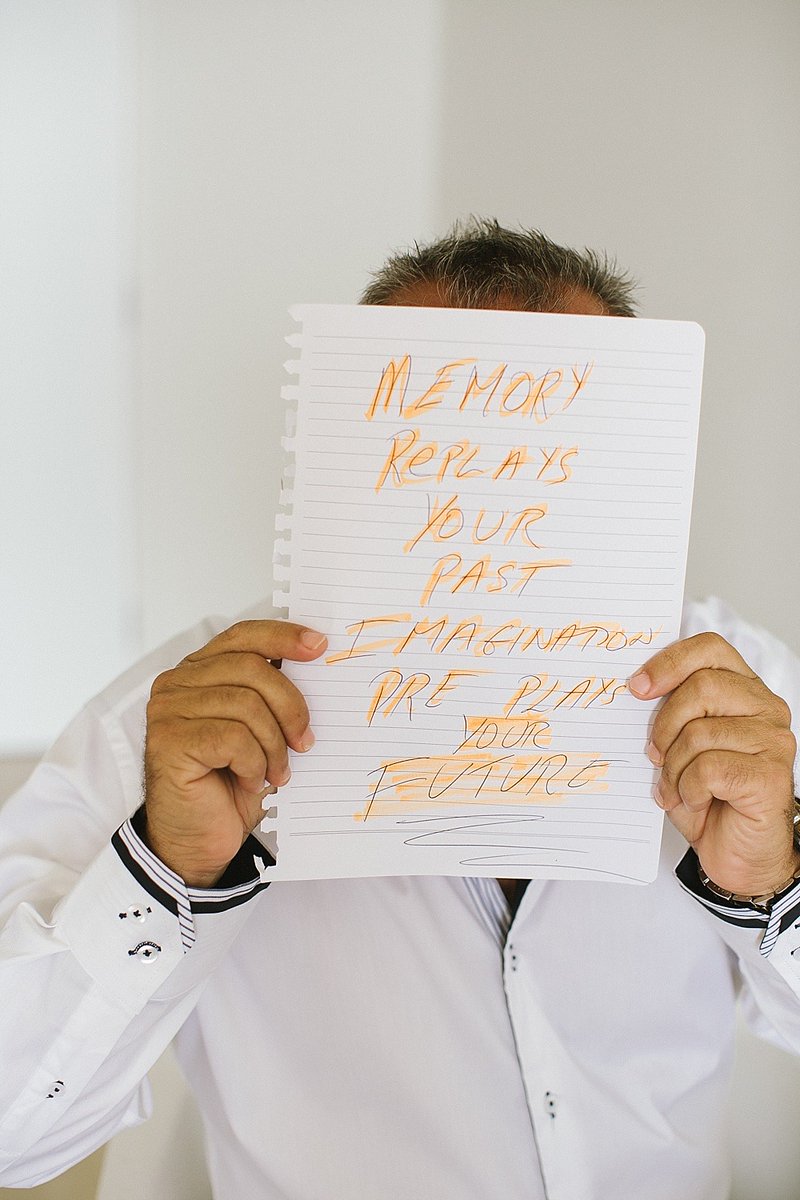 MEMORY
RePLAYS
YOUR
PAST
IMAGINATION
PRE PLAYS
YOUR
FUTURE